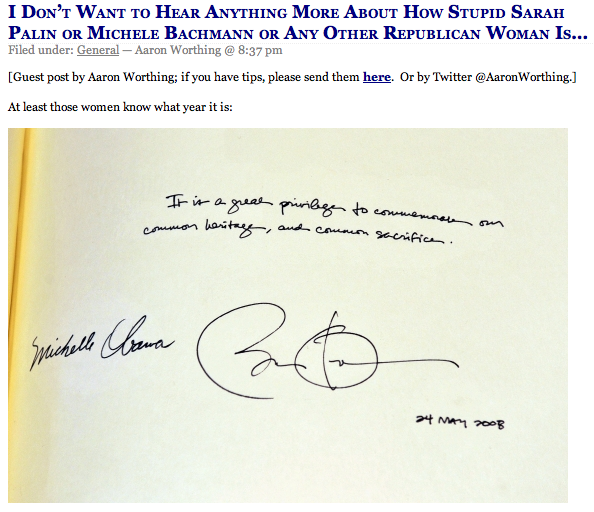 I Don't Want to Hear Anything More About How Stupid Sarah
Palin or Michele Bachmann or Any Other Republican Woman Is…
Filed under: General — Aaron Worthing @ 8:37 pm
[Guest post by Aaron Worthing; if you have tips, please send them here. Or by Twitter @AaronWorthing.]
At least those women know what year it is:
It is a great privilege to commemorate our
common heritage, and common sacrifice.
Michelle Obama
24 MAY 2008